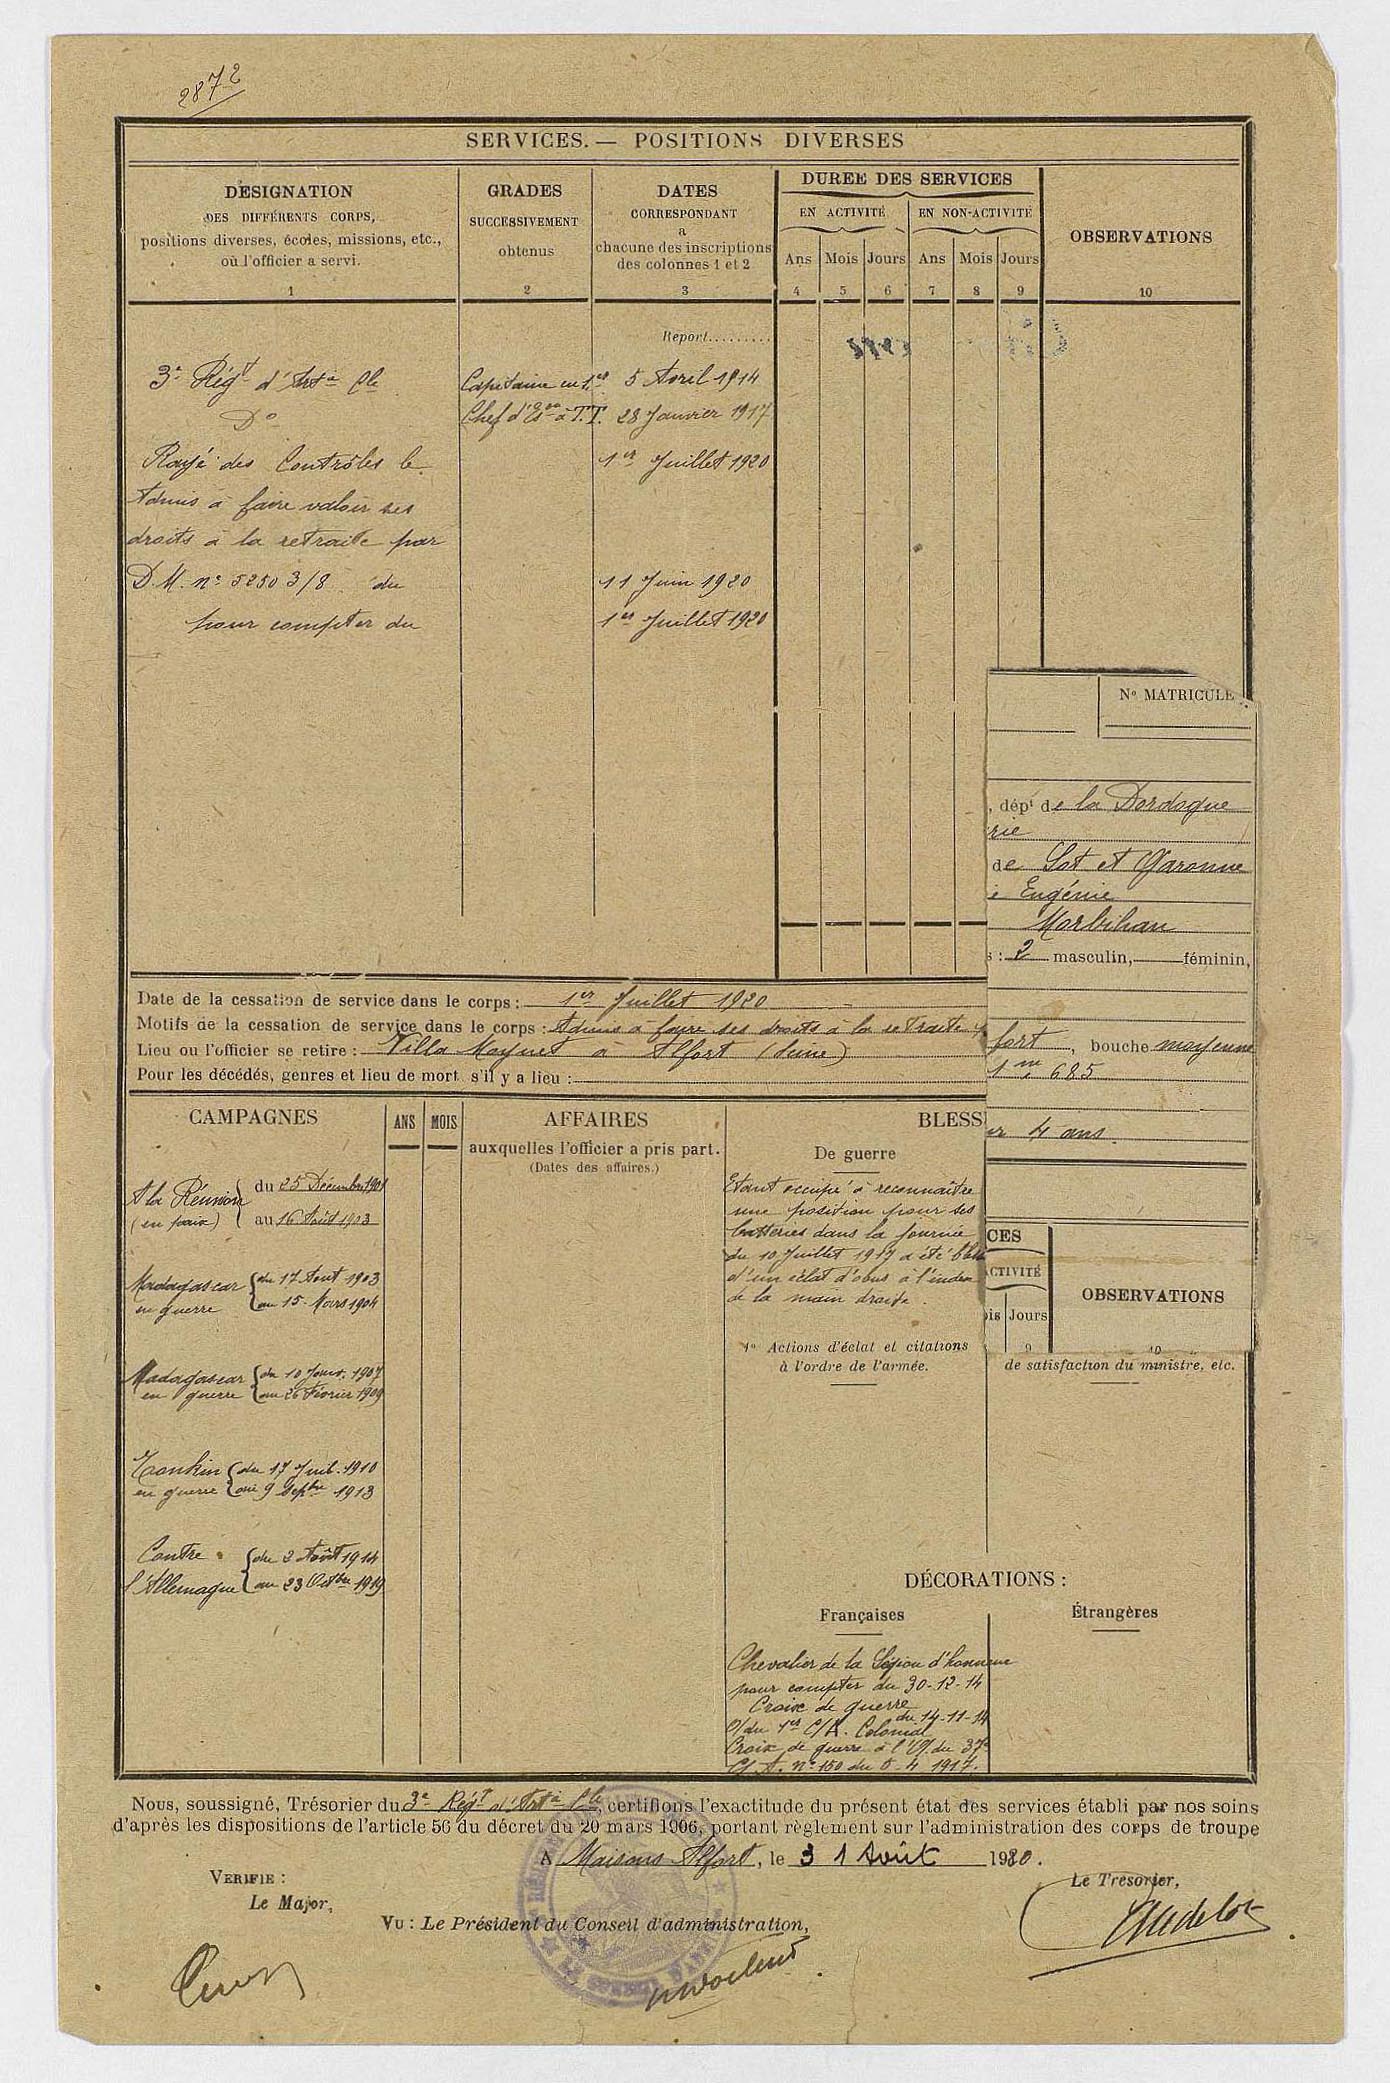 2872
SERVICES. — POSITIONS DIVERSES
DÉSIGNATION
DES DIFFÉRENTS CORPS,
positions diverses, écoles, missions, etc.,
où l'officier a servi.
1
GRADES
SUCCESSIVEMENT
obtenus
2
DATES
CORRESPONDANT
a
chacune des inscriptions
des colonnes 1 et 2
3
DUREE DES SERVICES
EN ACTIVITÉ
EN NON-ACTIVITÉ
Ans Mois Jours Ans Mois Jours
4 5 6 7 8 9
OBSERVATIONS
10
Report.........
3e Régt d'Artie Cle Capitaine en 1er 5 Avril 1914
Do Chef d'Eson à T.T. 28 Janvier 1917
Rayé des Contrôles le 1er Juillet 1920
Admis à faire valoir ses
droits à la retraite par
D.M. no 5250 3/8 du 11 Juin 1920
pour compter du 1er Juillet 1920
No MATRICULE
, dépt de la Dordogne
rie
de Lot et Garonne
e Eugénie
Morbihan
s : 2 masculin, féminin,
fort , bouche moyenne
1m 685
ur 4 ans.
CES
ACTIVITÉ
is Jours
9
OBSERVATIONS
10
Date de la cessation de service dans le corps : 1er Juillet 1920
Motifs de la cessation de service dans le corps : Admis à faire ses droits à la retraite
Lieu ou l'officier se retire : Villa Moynet à Alfort (Seine)
Pour les décédés, genres et lieu de mort s'il y a lieu :
CAMPAGNES
ANS
MOIS
AFFAIRES
auxquelles l'officier a pris part.
(Dates des affaires.)
BLESS
De guerre
A la Réunion du 25 Décembre 1901
(en paix) au 16 Août 1903
Madagascar du 17 Aout 1903
en guerre au 15 Mars 1904
Madagascar du 10 Janv. 1907
en guerre au 26 Février 1909
Tonkin du 17 Juil. 1910
en guerre au 9 Septbre 1913
Contre du 2 Août 1914
l'Allemagne au 23 Octbre 1919
Etant occupé à reconnaître
une position pour ses
batteries dans la journée
du 10 Juillet 1917 a été bles
d'un éclat d'obus à l'index
de la main droite.
1o Actions d'éclat et citations
à l'ordre de l'armée.
de satisfaction du ministre, etc.
DÉCORATIONS :
Françaises
Étrangères
Chevalier de la Légion d'honneur
pour compter du 30-12-14
Croix de guerre
du 14-11-14
O/du 1er C/A. Colonial
Croix de guerre à l'O/. du 37e
C/A. no 150 du 5-4 1917.
Nous, soussigné, Trésorier du 3e Régt d'Artie Cle, certifions l'exactitude du présent état des services établi par nos soins
d'après les dispositions de l'article 56 du décret du 20 mars 1906, portant règlement sur l'administration des corps de troupe
A Maisons Alfort, le 31 Août 1920.
VERIFIE :
Le Major,
Vu : Le Président du Conseil d'administration,
Le Tresorier,